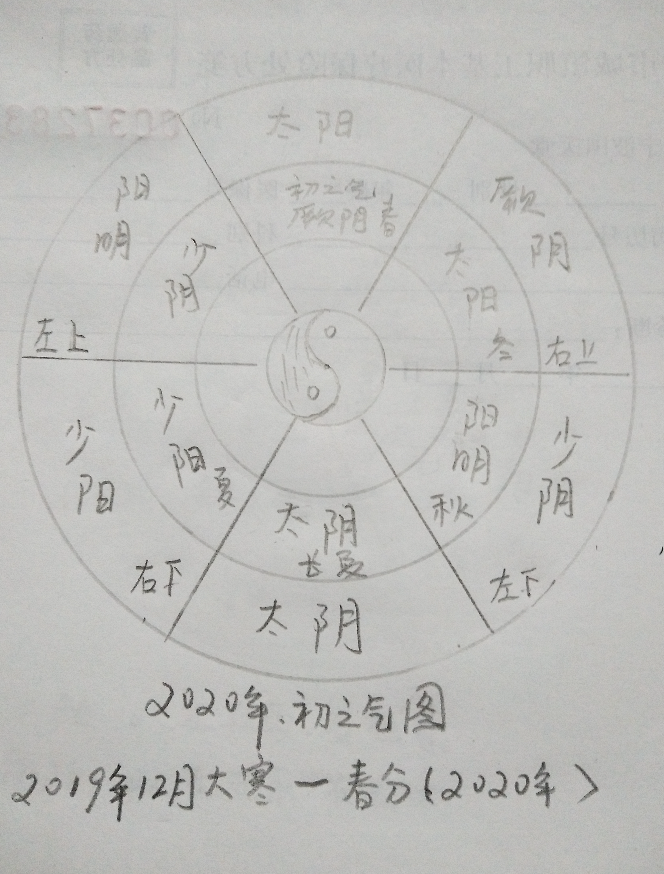 太阳
阳明
厥阴
初之气
厥阴春
少阴
太阳
冬
左上
右上
少阳
夏
阳明
秋
少阳
少阴
太阴
长夏
右下
左下
太阴
2020年、初之气图
2019年12月大寒一春分(2020年)